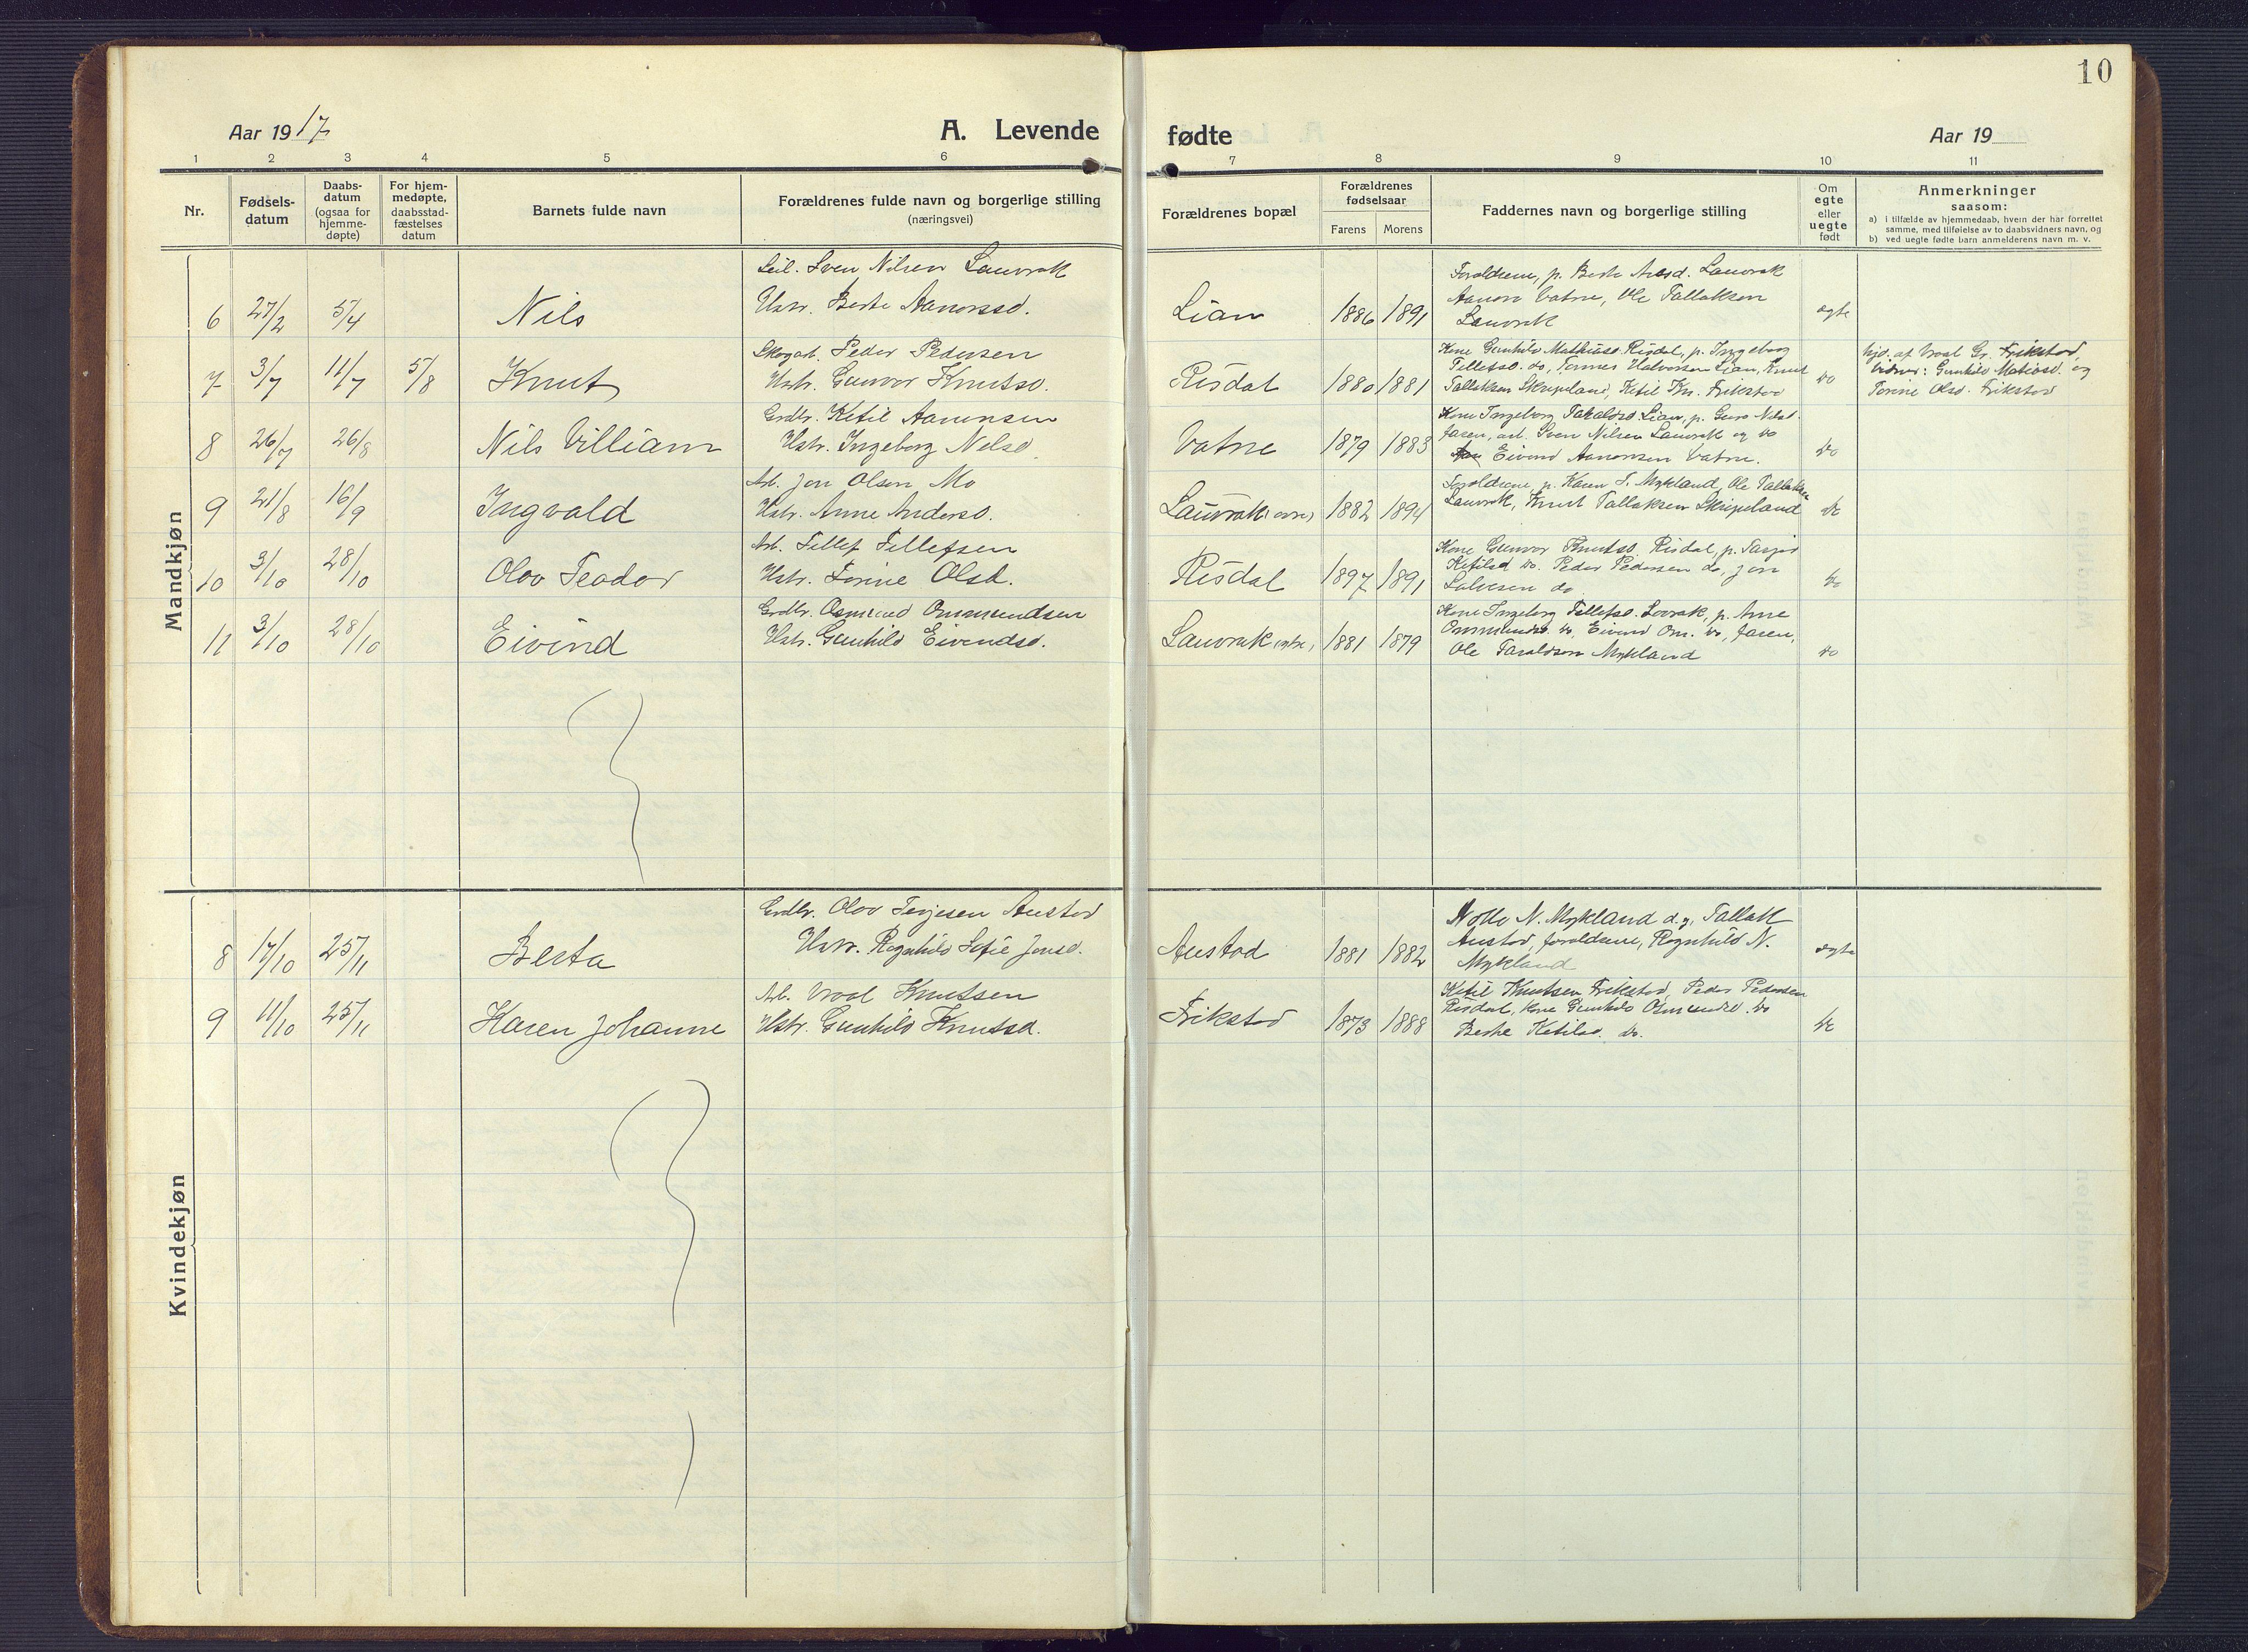 10
Aar 1917
A. Levende
fødte
Aar 19
1 2 3 4 5 6 7 8 9 10 11
Nr.
Fødsels-
datum
Daabs-
datum
(ogsaa for
hjemme-
døpte)
For hjem-
medøpte,
daabsstad-
fæstelses
datum
Barnets fulde navn
Forældrenes fulde navn og borgerlige stilling
(næringsvei)
Forældrenes bopæl
Forældrenes
fødselsaar
Farens Morens
Faddernes navn og borgerlige stilling
Om
egte
eller
uegte
født
Anmerkninger
saasom:
a) i tilfælde av hjemmedaab, hvem der har forrettet
samme, med tilføielse av to daabsvidners navn, og
b) ved uegte fødte barn anmelderens navn m. v.
Mandkjøn
6 27/2 5/4 Nils
Sven Nilsen Lauvrak
Hstr. Berte Aanonsd.
Lian 1886 1891
Forældrene, p. Berte Lauvrak
Aanon Vatne, Ole Tallaksen
Lauvrak
egte
7 3/7 11/7 5/8 Knut
Skogarb. Peder Pedersen
Hstr. Gunvor Knutsd.
Risdal 1880 1881
Kone Gunhild Mathiasd. Risdal, p. Ingeborg
Tellefsd. do, Tomes Halvorsen Lian, Knut
Tallaksen Skripeland, Ketil Kn. Frikstad
do
hjd. af Vraal Gr. Frikstad,
Vidner: Gunhild Matiasd. og
Torine Olsd. Frikstad
8 26/7 26/8 Nils Villiam
Grdbr. Ketil Aanonsen
Hstr. Ingeborg Nilsd.
Vatne 1879 1883
Kone Ingeborg Taraldsd. Lian, p. Guro Nilsd.
faren, arb. Sven Nilsen Lauvrak og do
Eivind Aanonsen Vatne.
do
9 21/8 16/9 Ingvald
Arb. Jon Olsen Mo
Hstr. Anne Andersd.
Lauvrak 1882 1894
Forældrene, p. Karen T. Mykland, Ole Tallaksen
Lauvrak, Knut Tallaksen Skripeland
do
10 3/10 28/10 Olav Teodor
Arb. Tellef Tellefsen
Hstr. Torine Olsd.
Risdal 1897 1891
Kone Gunvor Knutsd. Risdal, p. Tarjer
Ketilsd do. Peder Pedersen do, Jon
Salvesen do
do
11 3/10 28/10 Eivind
Grdbr. Osmund Ommundsen
Hstr. Gunhild Eivendsd.
Lauvrak 1881 1879
Kone Ingeborg Tellefsd. Lovrak, p. Anne
Ommundsd. do, Eivind Om. do, faren,
Ole Taraldsen Mykland
do
Kvindekjøn
8 17/10 25/11 Berta
Grdbr. Olav Terjesen Austad
Hstr. Ragnhild Sofie Jonsd.
Austad 1881 1882
N. Mykland d.y., Tallak
Austad, forældrene, Ragnhild N.
Mykland
egte
9 11/10 25/11 Karen Johanne
Arb. Vraal Knutsen
Hstr. Gunhild Knutsd.
Frikstad 1873 1888
Ketil Knutsen Frikstad, Peder Pedersen
Risdal, kone Gunhild Osmundsd. do
Berthe Ketilsd. do.
do